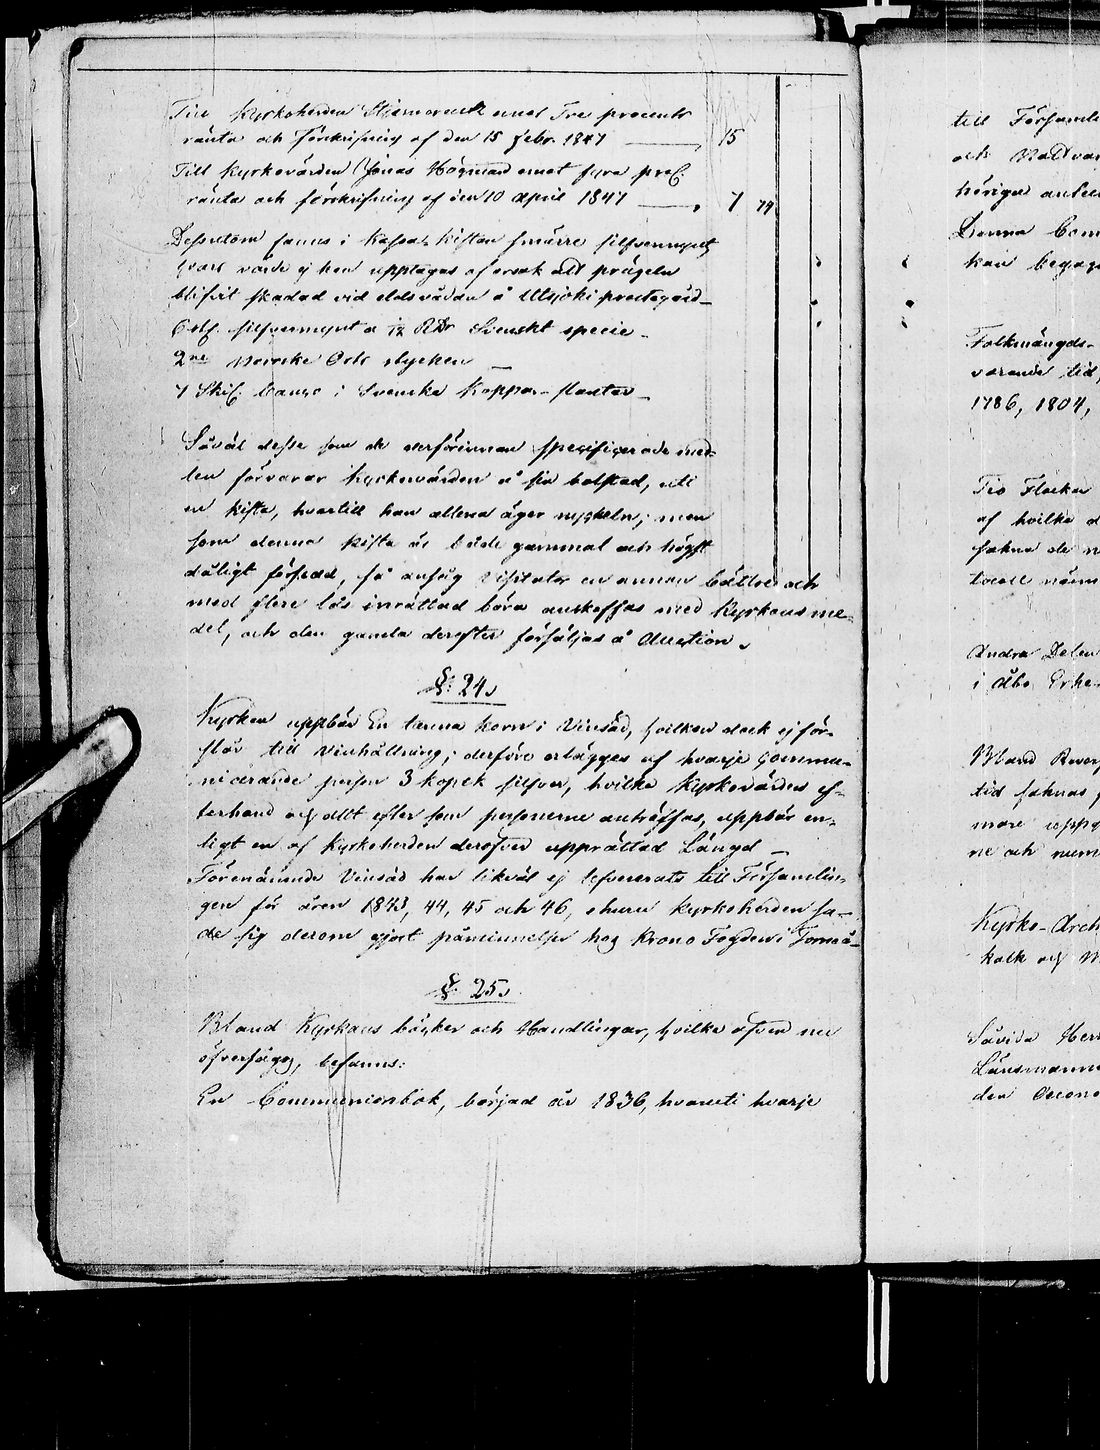 Till Kyrkoherden Stjerncreutz emot Tre procents
ränta och förskrifning af den 15 Febr. 1847 — 15
Till Kyrkovärden Jonas Högman emot fyra proC.
ränta och förskrifning af den 10 April 1847 — 7 74
Dessutom fanns i Kassa-Kistan smärre silfvermynt,
hvars värde ej här upptages af orsak att prägeln
blifvit skadad vid eldsvådan å Utsjoki prestegård_
6 st. silfvermynt a 1/12 RDr Svenskt specie_
2ne Norrske Orts stycken_
7 Skil. Banco i Svenska Koppar-slantar_
Såväl desse som de derförinnan specificerade med-
len förvarar Kyrkovärden å sin bolstad, uti
en kista, hvartill han allena äger nyckeln; men
som denna kista är både gammal och högst
dåligt försedd, så ansåg Visitator en annan bättre och
med flere lås inrättad böra anskaffas med Kyrkans me-
del, och den gamla derefter försäljas å Auction.
§: 24.
Kyrkan uppbär En tunna korn i Vinsäd, hvilken dock ej för-
slår till Vinhållning; derföre erlägges af hvarje Commu-
nicerande person 3 kopek silfver, hvilka Kyrkovärden ef-
terhand och allt efter som personerne anträffas, uppbär en-
ligt en af Kyrkoherden deröfver upprättad Längd_
Förenämnde Vinsäd har likväl ej lefvererats till Församlin-
gen för åren 1843, 44, 45 och 46, ehuru Kyrkoherden sa-
de sig derom gjort påminnelser hos Krono Fogden i Torneå_
§: 25.
Bland Kyrkans böcker och Handlingar, hvilka äfven nu
öfversågos, befanns:
En Communionbok, börjad år 1836, hvaruti hvarje
till Församli
och Nattvar
hörigen
Denna Com
kan begag
Folkmängds-
varande tid,
1786, 1804,
Tio Flockar
af hvilka
sakna de
Andra Delen
i Åbo Erke
Bland
tid saknas
more
ne och num
Kyrko-Arch
kalk och
Såvida Herr
Länsmannen
den